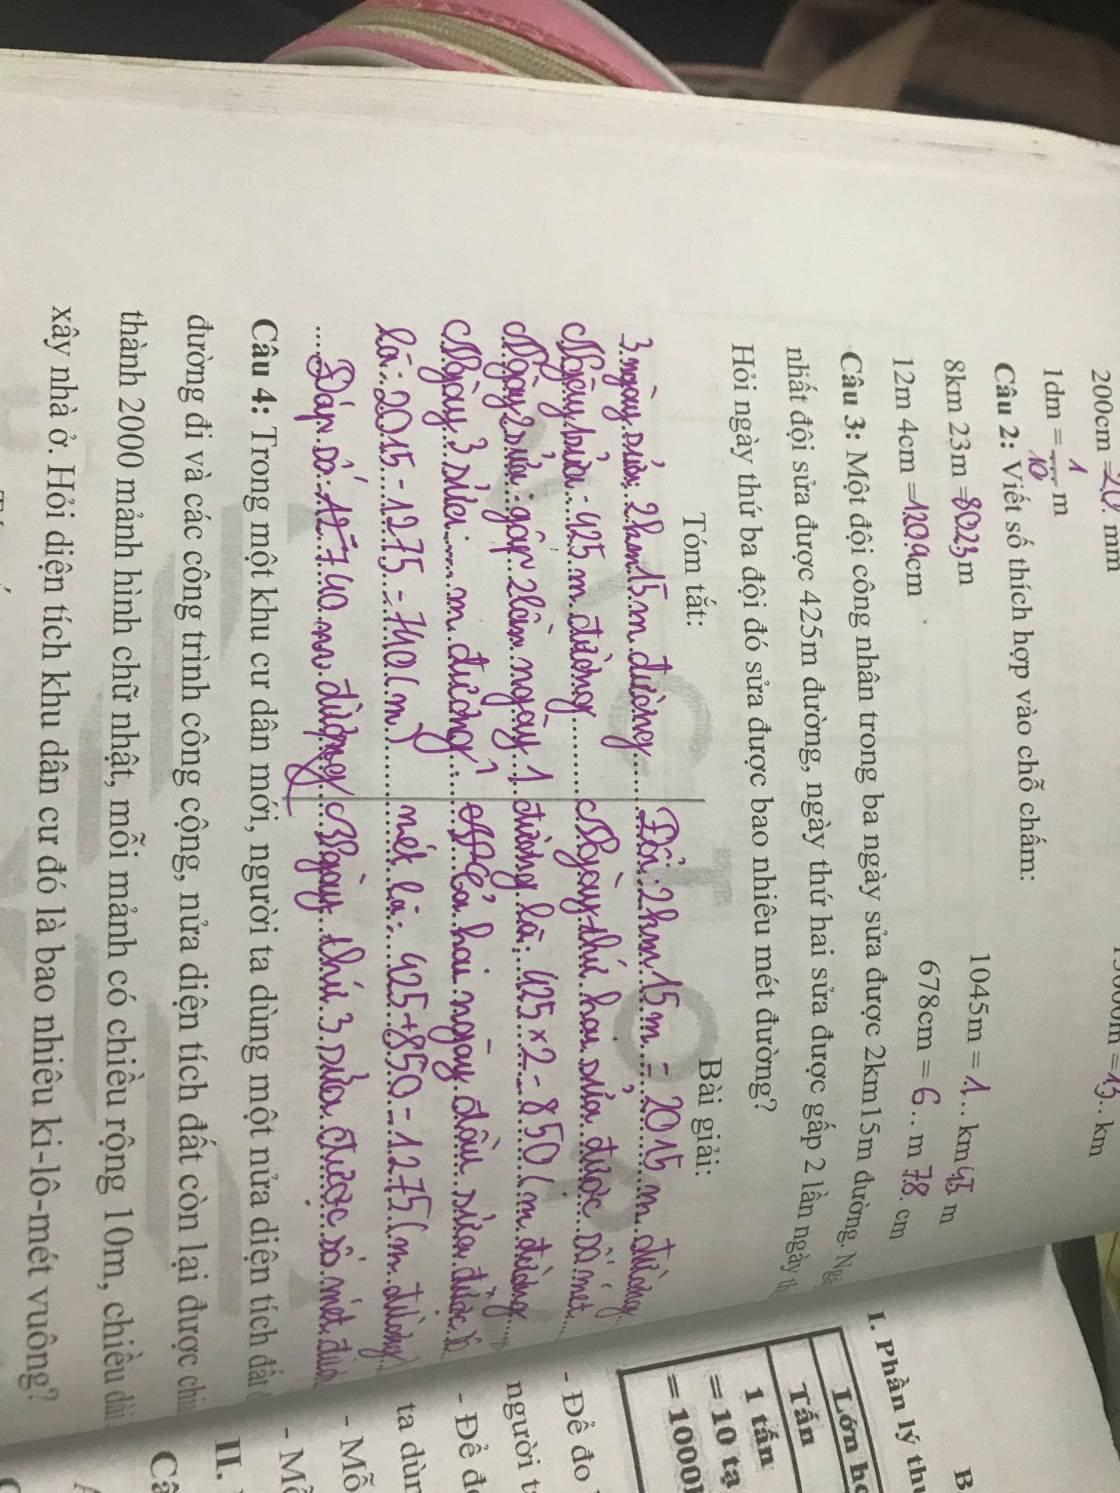 200cm = mm
1dm = 1/10 m
Câu 2: Viết số thích hợp vào chỗ chấm:
8km 23m = 8023 m
1045m = 1 .. km 45 m
12m 4cm = 1204 cm
678cm = 6 .. m 78 cm
Câu 3: Một đội công nhân trong ba ngày sửa được 2km15m đường.
nhất đội sửa được 425m đường, ngày thứ hai sửa được gấp 2 lần ngày
Hỏi ngày thứ ba đội đó sửa được bao nhiêu mét đường?
Tóm tắt:
3 ngày sửa: 2km 15m đường
Ngày : 425 m đường
Ngày 2 sửa: gấp 2 lần ngày 1
Ngày 3 sửa ...... m đường?
Bài giải:
Đổi: 2km 15m = 2015 m đường
Ngày thứ hai sửa được số mét
đường là: 425 x 2 = 850 (m đường
Cả hai ngày đầu sửa được số
mét là: 425 + 850 = 1275 (m đường
Ngày thứ 3 sửa được số mét
là: 2015 - 1275 = 740 (m)
Đáp số: 740 m đường
Câu 4: Trong một khu cư dân mới, người ta dùng một nửa diện tích đất
đường đi và các công trình công cộng, nửa diện tích đất còn lại được
thành 2000 mảnh hình chữ nhật, mỗi mảnh có chiều rộng 10m, chiều dài
xây nhà ở. Hỏi diện tích khu dân cư đó là bao nhiêu ki-lô-mét vuông?
I. Phần lý
Tấn
1 tấn
= 10 tạ
- Để đo
người
- Để
ta
- Mỗ
II.